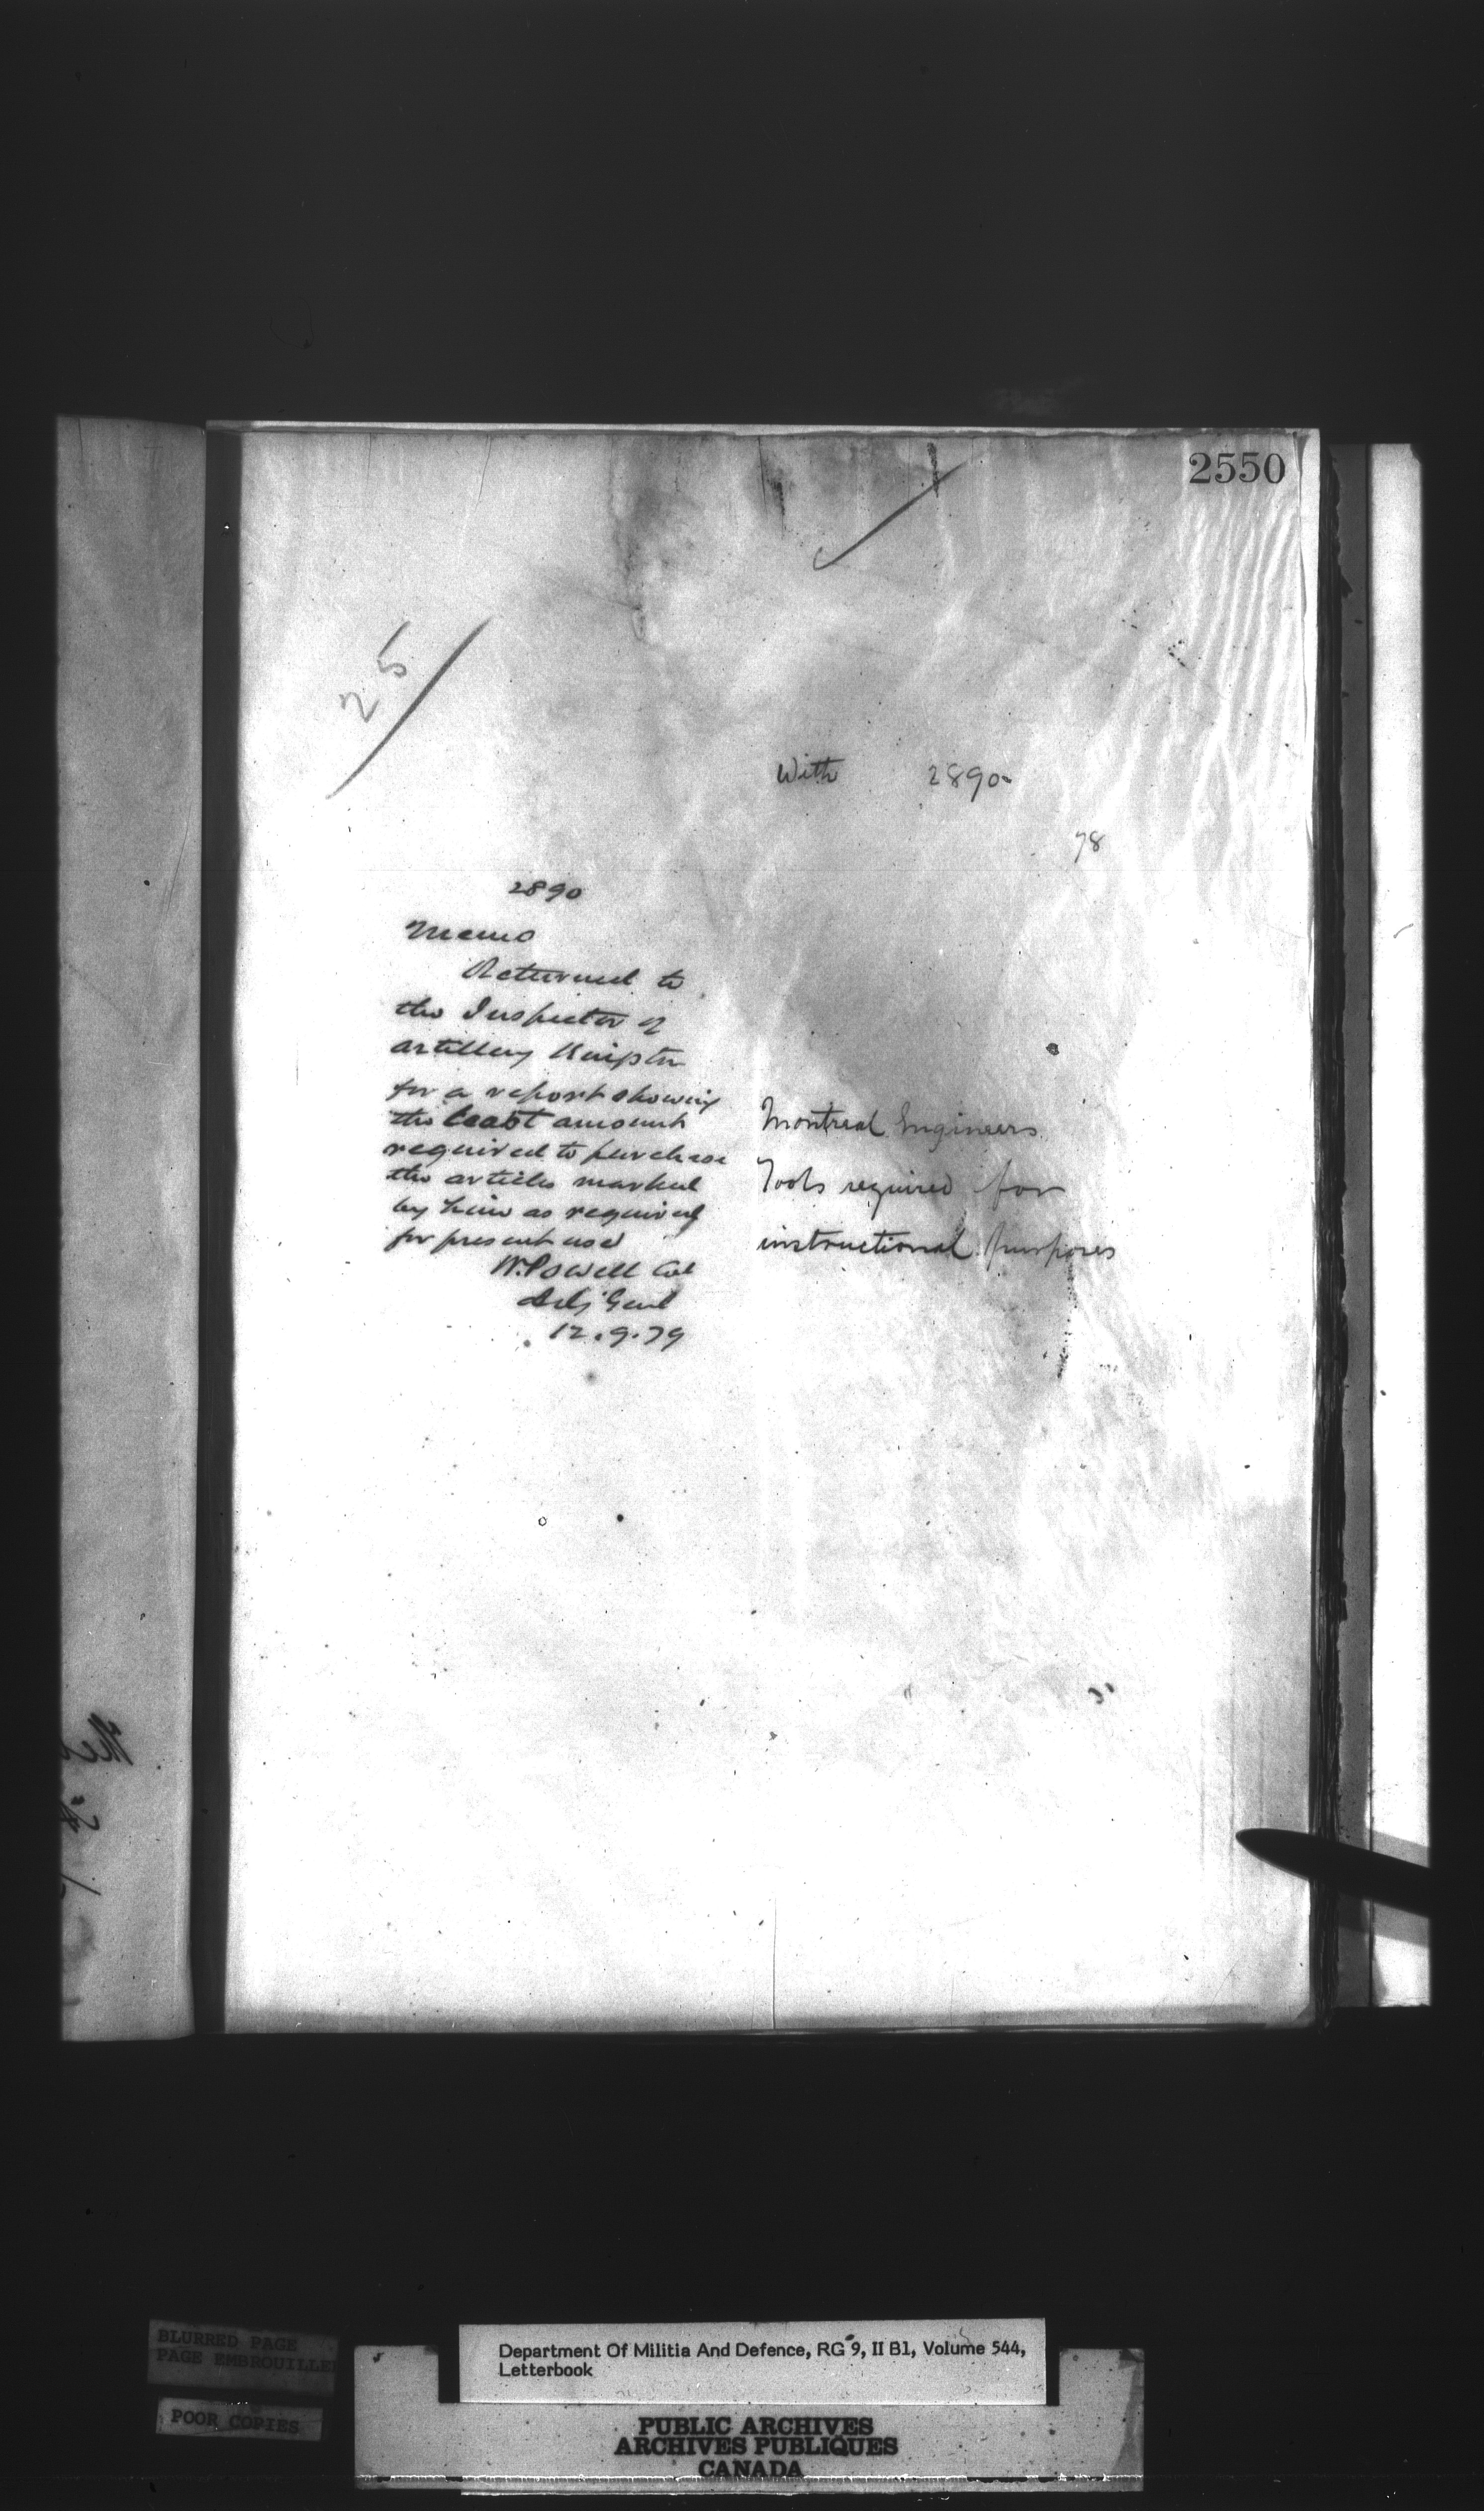 2550
25
With 2890
78
2890
Memo
Returned to
the Inspector of
artillery Kingston
for a report showing
the least amount
required to purchase
the articles marked
by him as required
for present use
W. Powell Col
Adj Genl
12.9.79
Montreal Engineers
Tools required for
instructional purposes
BLURRED PAGE
PAGE EMBROUILLE
POOR COPIES
Department Of Militia And Defence, RG 9, II B1, Volume 544,
Letterbook
PUBLIC ARCHIVES
ARCHIVES PUBLIQUES
CANADA